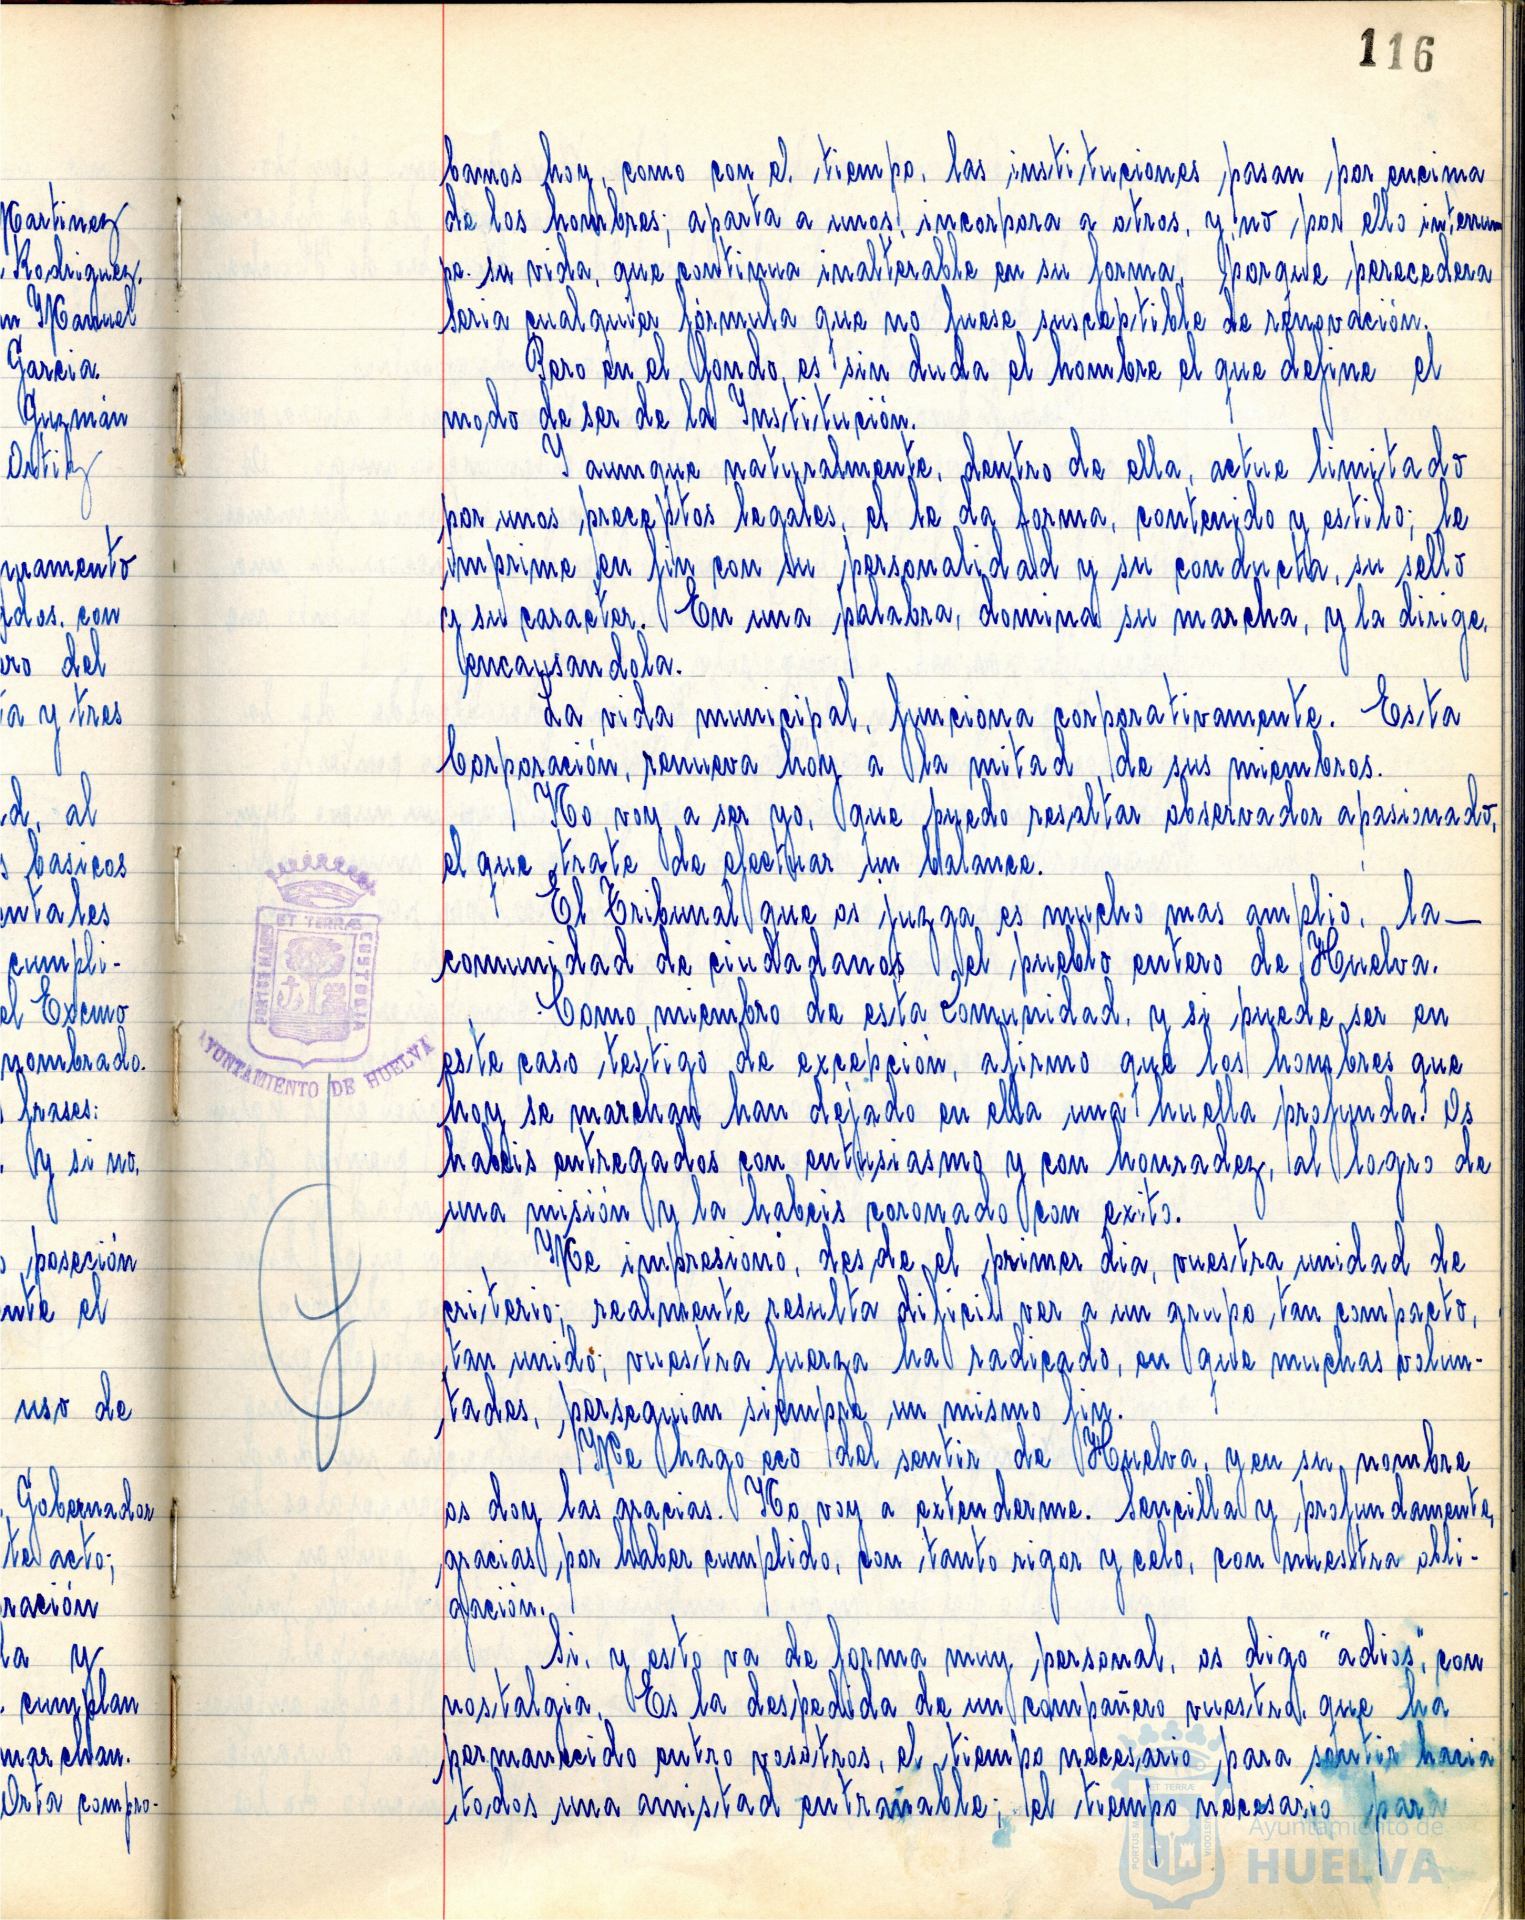 116
Martinez
Rodriguez.
n Manuel
Garcia.
Guzmán
Ortiz
uramento
ados, con
ro del
ta y tres
d, al
s basicos
entales
cumpli-
el Excmo
nombrado.
frases:
. Y si no,
poseción
nte el
uso de
Gobernador
te acto;
ración
la y
. cumplan
marchan.
Orta compro-
bamos hoy, como con el tiempo, las instituciones pasan por encima
de los hombres; aparta a unos, incorpora a otros, y no por ello interrum
pe su vida, que continua inalterable en su forma, porque perecedera
seria cualquier fórmula que no fuese susceptible de renovación.
Pero en el fondo, es sin duda el hombre el que define el
modo de ser de la Institución.
Y aunque naturalmente, dentro de ella, actue limitado
por unos preceptos legales, el le da forma, contenido y estilo; le
imprime en fin con su personalidad y su conducta, su sello
y su caracter. En una palabra, domina su marcha, y la dirige,
encausandola.
La vida municipal, funciona corporativamente. Esta
Corporación, renueva hoy a la mitad de sus miembros.
No voy a ser yo, que puedo resultar observador apasionado,
el que trate de efectuar un balance.
El Tribunal que os juzga es mucho mas amplio, la—
comunidad de ciudadanos, el pueblo entero de Huelva.
Como miembro de esta Comunidad, y si puede ser en
este caso testigo de excepción, afirmo que los hombres que
hoy se marchan han dejado en ella una huella profunda. Os
habeis entregados con entusiasmo y con honradez, al logro de
una misión y la habeis coronado con exito.
Me impresionó, desde el primer dia, vuestra unidad de
criterio; realmente resulta dificil ver a un grupo tan compacto,
tan unido; vuestra fuerza ha radicado, en que muchas volun-
tades, perseguian siempre un mismo fin.
Me hago eco del sentir de Huelva, y en su nombre
os doy las gracias. No voy a extenderme. Sencilla y profundamente,
gracias por haber cumplido, con tanto rigor y celo, con nuestra obli-
gación.
Si, y esto va de forma muy personal, os digo "adios", con
nostalgia. Es la despedida de un compañero vuestro, que ha
permanecido entre vosotros, el tiempo necesario para sentir hacia
todos una amistad entrañable; el tiempo necesario para
PORTUS MARIS
ET TERRAE
CUSTODIA
AYUNTAMIENTO DE HUELVA
Ayuntamiento de
HUELVA